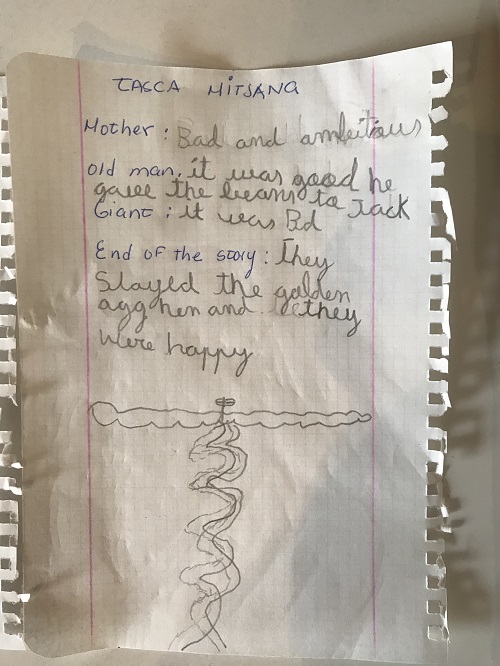 TASCA MITJANA
Mother: Bad and ambitious
old man. it was good he
gave the beans to Jack
Giant: it was Bd
End of the story: They
Slayed the golden
agg hen and they
were happy